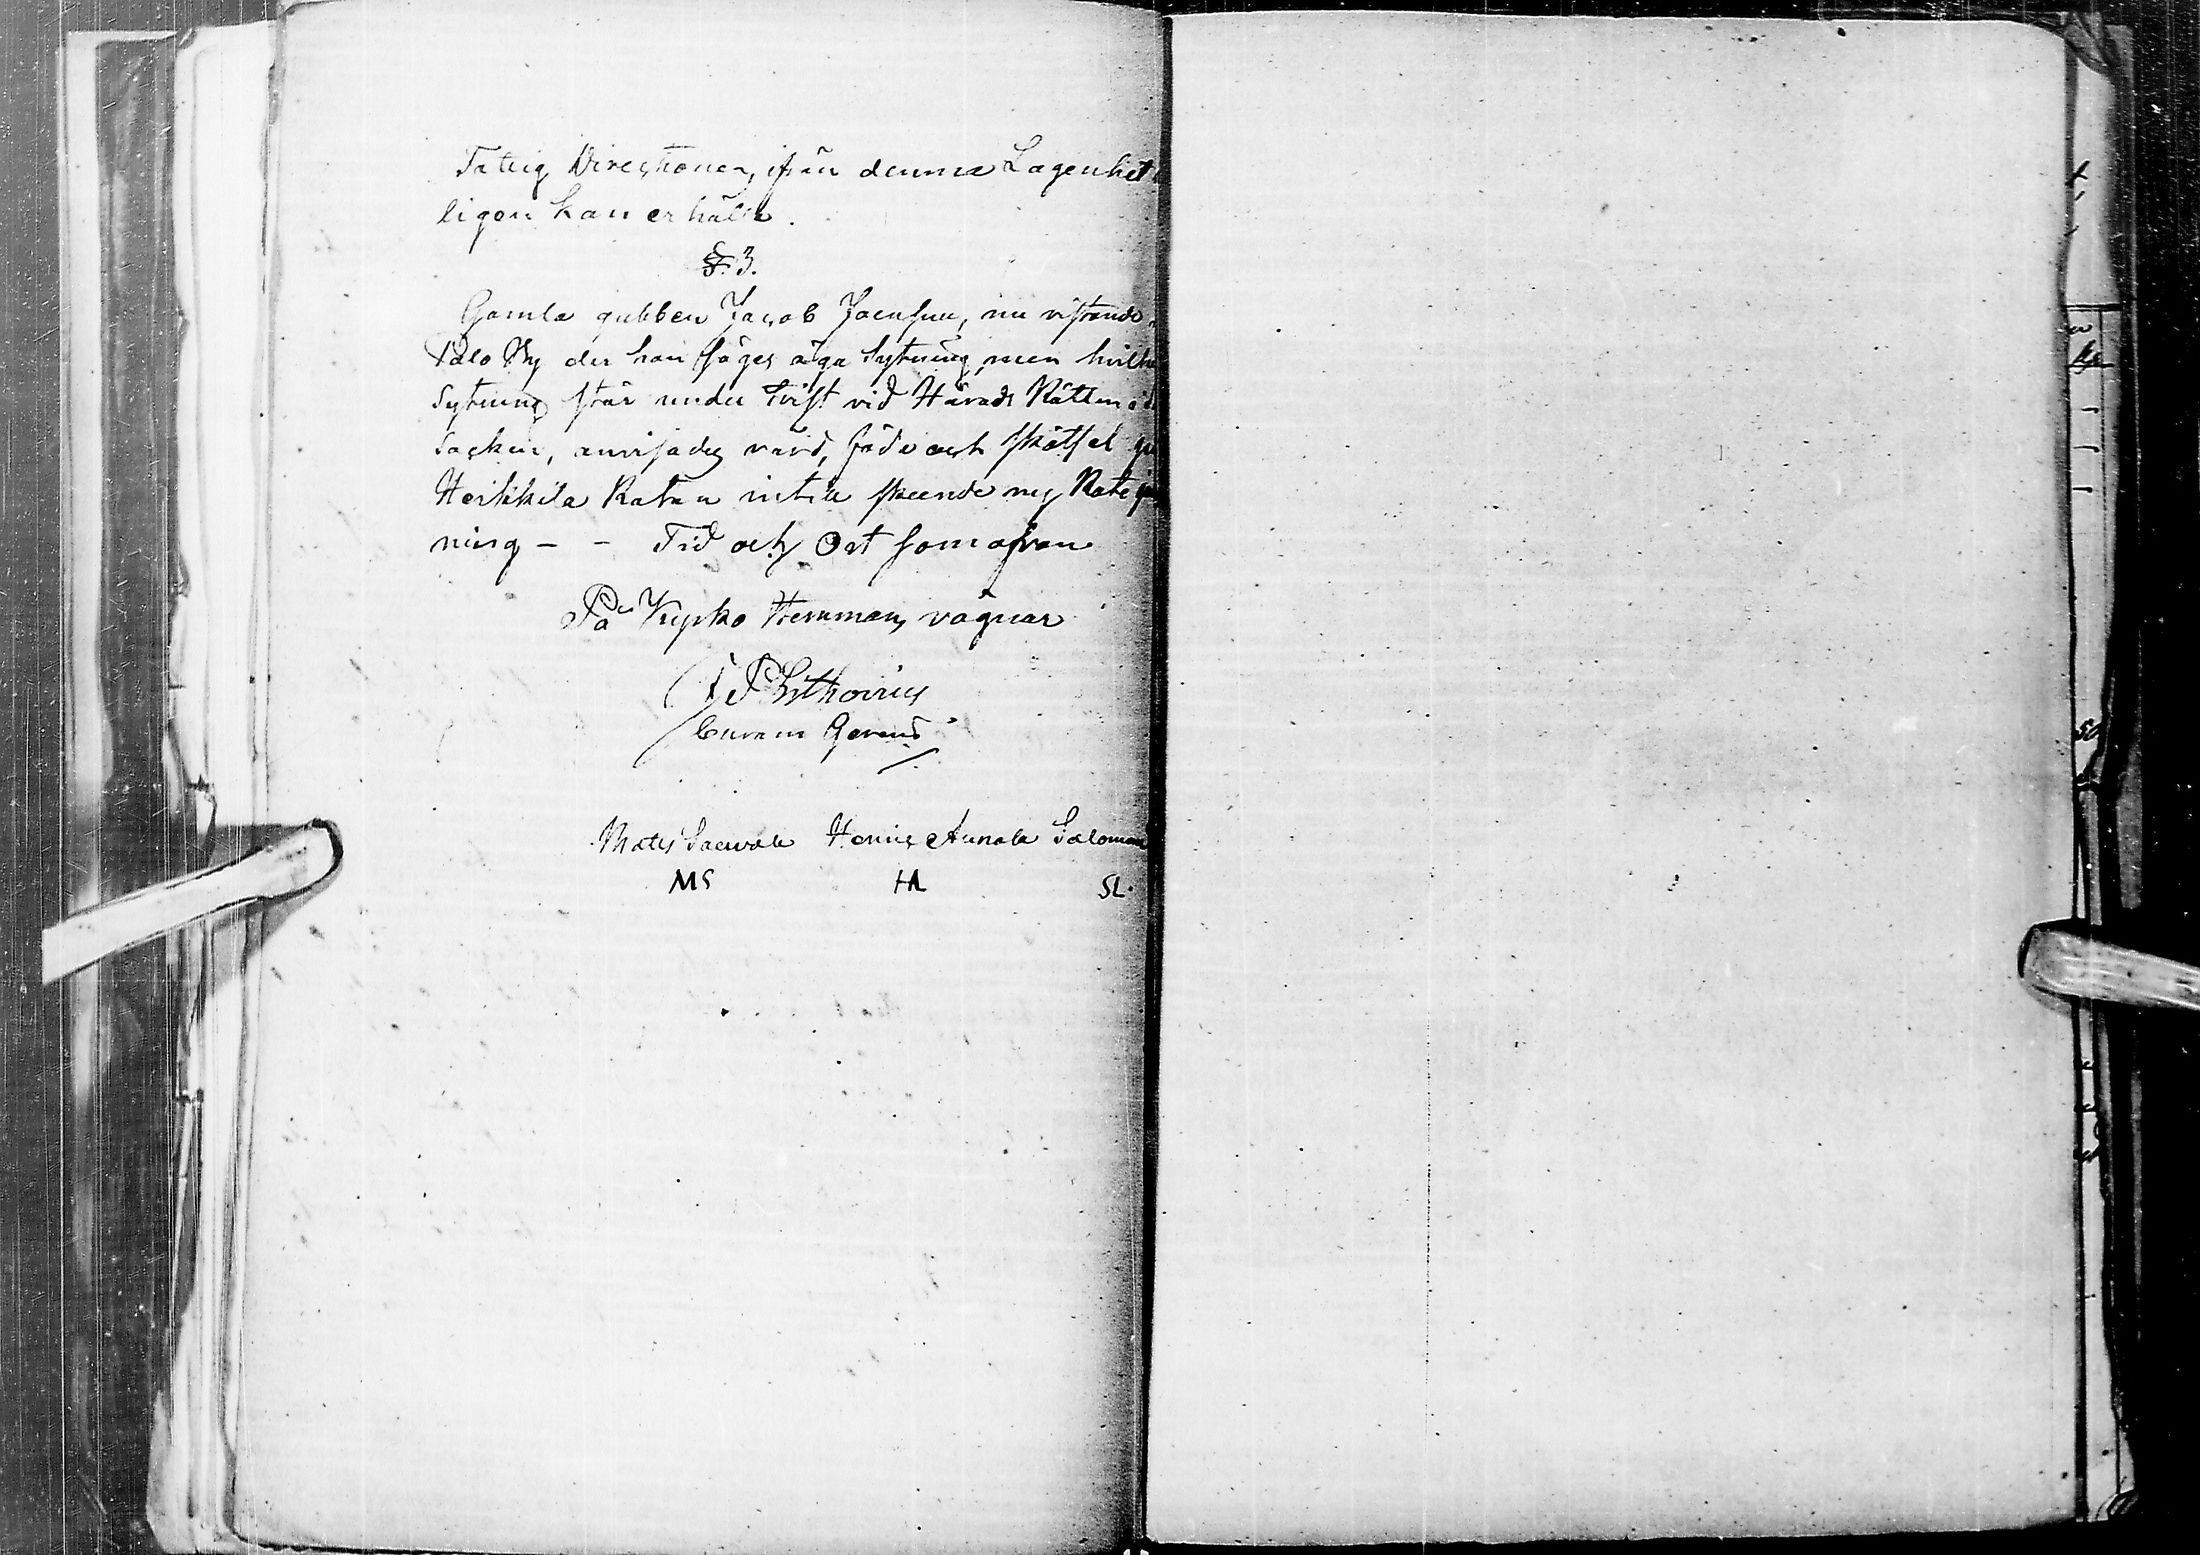 Fattig Direction, ifrån denna Lägenhet
ligen kan erhålla.
§. 3.
Gamla gubben Jacob Joensuu, nu vistande
Talo By der han säges äga Sytning, men hvilken
Sytning står under Tvist vid Härads Rätten i
Socken, anvisades vård, föda och skötsel
Heikkilä Roten intill skeende ny Rote
ning - - Tid och Ort som ofvan
På Kyrko Stemmans vägnar
Lithovius
Curam Gerens
Matts Saewala Henric Annala Salomon
MS HA SL.